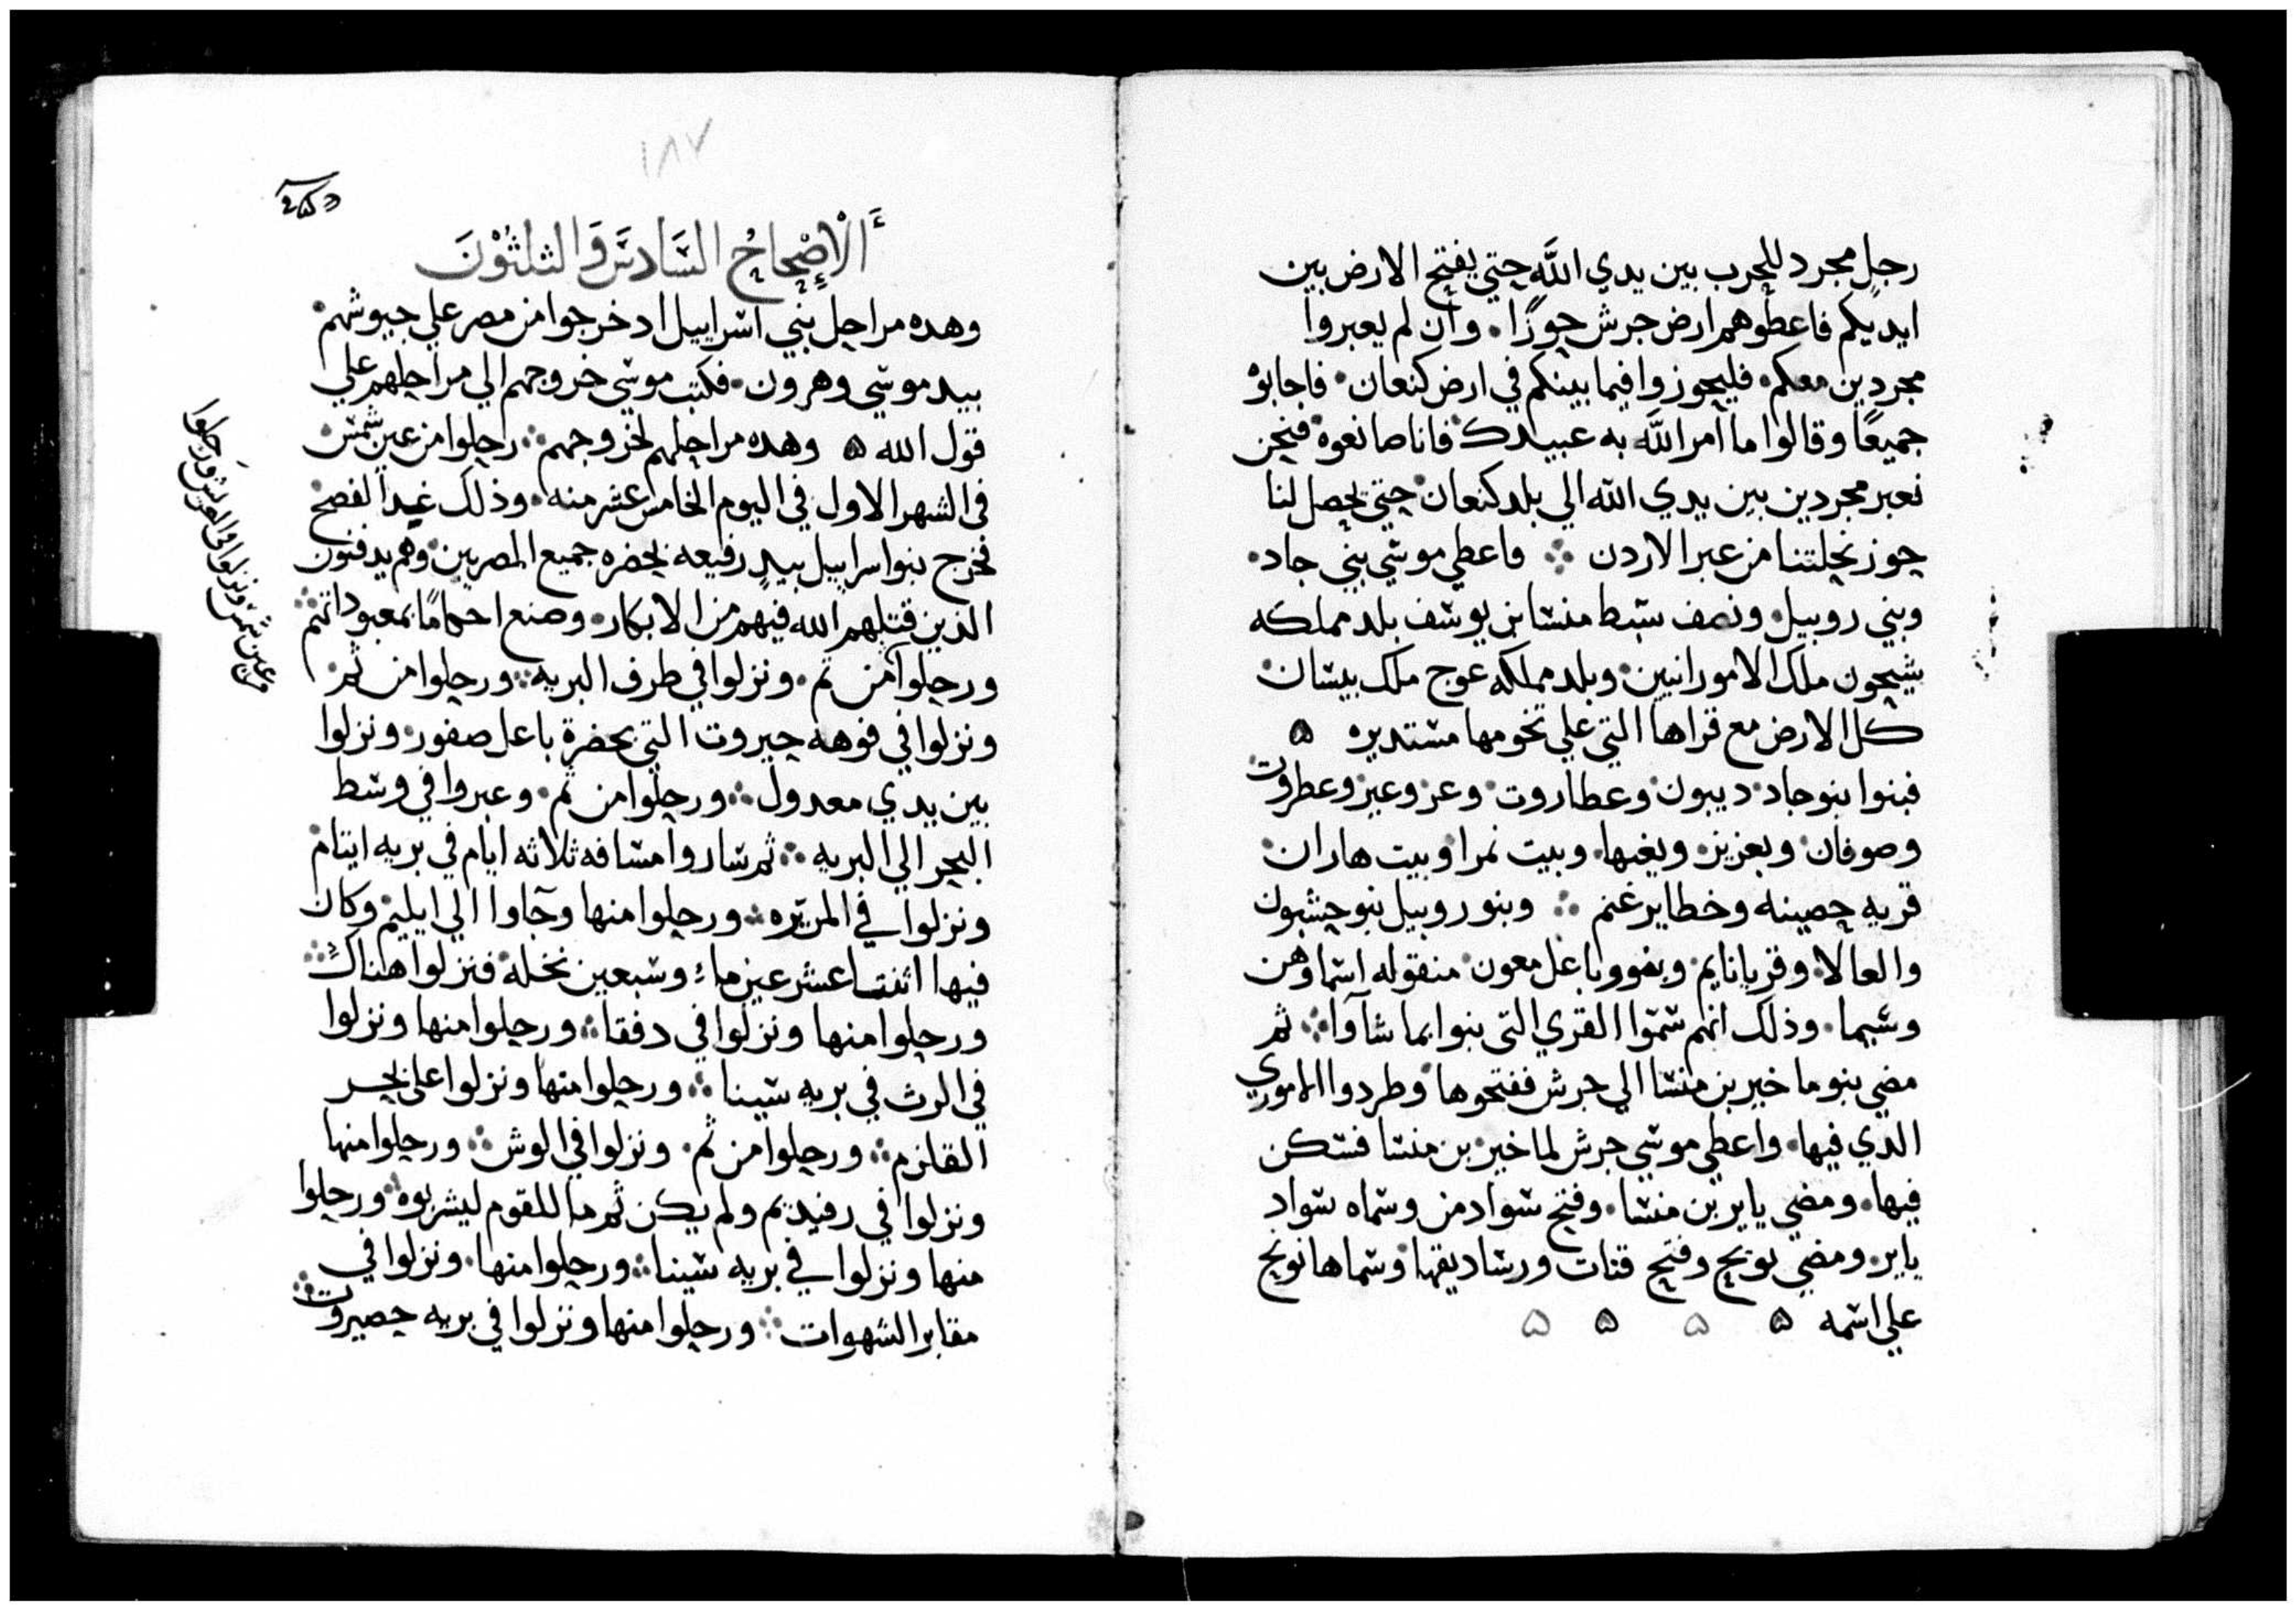 رجل مجرد للحرب بين يدي الله حتي يفتح الارض بين
ايديكم فاعطوهم ارض جرش حوزًا. وان لم يعبروا
مجردين معكم فليحوزوا فيما بينكم في ارض كنعان فاجابوْ
جميعًا وقالوا ما امر الله به عبيدك فانا صانعوه فنحن
نعبر مجردين بين يدي الله الي بلد كنعان حتي يحصل لنا
حوز نحلتنا من عبر الاردن ∴ فاعطي موسي بني جاد
وبني روبيل ونصف سبط منسا بن يوسف بلد مملكه
سيحون ملك الامورانيين وبلد مملكه عوج ملك بيسان
كل الارض مع قراها التي علي تخومها مستديره ۵
فبنوا بنو جاد ديبون وعطاروت وعر وعير وعطروت
وصوفان ويعزيز ويغبها وبيت نمرا وبيت هاران
قريه حصينه وخطاير غنم ∴ وبنو روبيل بنو حشبون
والعالا وقريانايم وبفوو باعل معون منقوله اسماوهن
وسبما. وذلك انهم سموا القري التي بنوا بما شآوا ∴ ثم
مضي بنو ماخير بن منسا الي جرش ففتحوها وطردوا الاموري
الدي فيها. واعطي موسي جرش لماخير بن منسا فسكن
فيها. ومضي ياير بن منسا. وفتح سواد من وسماه سواد
ياير. ومضي نوبح وفتح قنات ورساديقها وسماها نوبح
علي اسمه ۵ ۵ ۵ ۵
١٨٧
اَلْإِصْحَاحُ السَّادسَ وَالثلثُوْنَ
وهده مراحل بني اسراييل اد خرجوا من مصر علي جيوشهم
بيد موسي وهرون. فكتب موسي خروجهم الي مراحلهم علي
قول الله ۵ وهده مراحلهم لخروجهم ∴ رحلوا من عين شمس
في الشهر الاول في اليوم الخامس عشر منه. وذلك غد الفصح
فخرج بنو اسراييل بيدٍ رفيعه بحضره جميع المصريين وهم يدفنون
الذين قتلهم الله فيهم من الابكار. وصنع احكامًا بمعبوداتهم ∴
ورحلوا من ثم. ونزلوا في طرف البريه ∴ ورحلوا من ثم
ونزلوا في فوهه حيروت التي بحضرة باعل صفور. ونزلوا
بين يدي معدول ∴ ورحلوا من ثم. وعبروا في وسط
البحر الي البريه ∴ ثم ساروا مسافه ثلاثه ايام في بريه ايتام
ونزلوا في المريره ∴ ورحلوا منها وجآوا الي ايليم وكان
فيها اثنتا عشر عين ماء وسبعين نخله فنزلوا هناك ∴
ورحلوا منها ونزلوا في دفقا ∴ ورحلوا منها ونزلوا
في الوث في بريه سينا ∴ ورحلوا منها ونزلوا علي بحر
القلزم ∴ ورحلوا من ثم. ونزلوا في الوش ∴ ورحلوا منها
ونزلوا في رفيديم ولم يكن ثم ما للقوم ليشربوه ∴ ورحلوا
منها ونزلوا في بريه سينا ∴ ورحلوا منها. ونزلوا في
مقابر الشهوات ∴ ورحلوا منها ونزلوا في بريه حصيروت ∴
من عين شمس ونزلوا في العريش ورحلوا